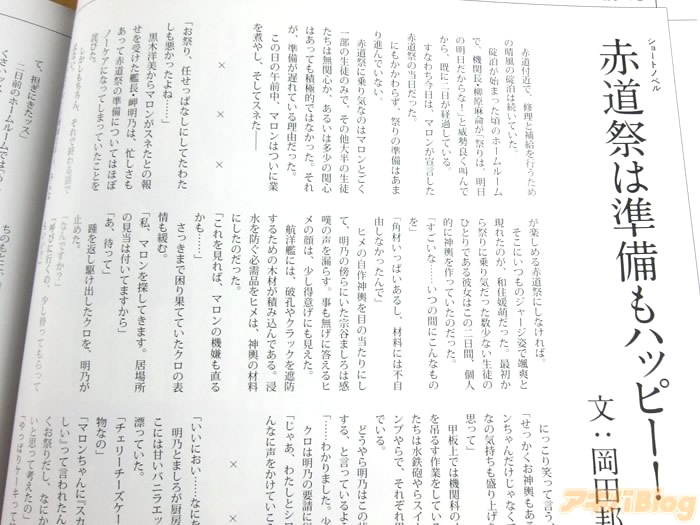 ショートノベル
赤道祭は準備もハッピー!
文：岡田邦
赤道付近で、修理と補給を行うため
の晴風の碇泊は続いていた。
碇泊が始まった頃のホームルーム
で、機関長・柳原麻侖が「祭りは、明日
の明日だからな!」と威勢良く叫んで
から、既に二日が経過している。
すなわち今日は、マロンが宣言した
赤道祭の当日だった。
にもかかわらず、祭りの準備はあま
り進んでいない。
赤道祭に乗り気なのはマロンとごく
一部の生徒のみで、その他大半の生徒
たちは無関心か、あるいは多少の関心
はあっても積極的ではなかった。それ
が、準備が遅れている理由だった。
この日の午前中、マロンはついに業
を煮やし、そしてスネた――
×　×　×
「お祭り、任せっぱなしにしてたわた
しも悪かったよね……」
黒木洋美からマロンがスネたとの報
せを受けた艦長・岬明乃は、忙しさも
あって赤道祭の準備についてはほぼ
ノーケアになってしまっていたことを
詫びた。
しかしもちろん、それで終わる話で
が楽しめる赤道祭にしなければ。
そこにいつものジャージ姿で颯爽と
現れたのが、和住媛萌だった。最初か
ら祭りに乗り気だった数少ない生徒の
ひとりである彼女はこの二日間、個人
的に神輿を作っていたのだった。
「すごいな……いつの間にこんなもの
を」
「角材いっぱいあるし、材料には不自
由しなかったんで」
ヒメの自作神輿を目の当たりにし
て、明乃の傍らにいた宗谷ましろは感
嘆の声を漏らす。事も無げに答えるヒ
メの顔は、少し得意げにも見えた。
航洋艦には、破孔やクラックを遮防
するための木材が積み込んである。浸
水を防ぐ必需品をヒメは、神輿の材料
にしたのだった。
「これを見れば、マロンの機嫌も直る
かも……」
さっきまで困り果てていたクロの表
情も緩む。
「私、マロンを探してきます。居場所
の見当は付いてますから」
「あ、待って」
踵を返し駆け出したクロを、明乃が
止めた。
「なんですか?」
「呼びに行くの、少し待ってもらって
にっこり笑って言う
「せっかくお神輿もある
ンちゃんだけじゃなく
なの気持ちも盛り上げ
思って」
甲板上では機関科の
を吊るす作業をしてい
たちは水鉄砲やらスイ
ンプやらで、それぞれ
でいる。
どうやら明乃はこの状
する、と言っているよう
「……わかりました。少
クロは明乃の要請に
「じゃあ、わたしとシロ
んなに声をかけてい
×
「いいにおい……なにを
明乃とましろが厨房
こには甘いバニラエッ
漂っていた。
「チェリーチーズケーキ
物なの」
「マロンちゃんに『スカ
しい』って言われたん
くお祭りだし、なにか
いと思って考えたの」
「やっぱりケーキって
て、担ぎにきたッス」
二日前のホームルームでは
ちのもとに、
アキバBlog